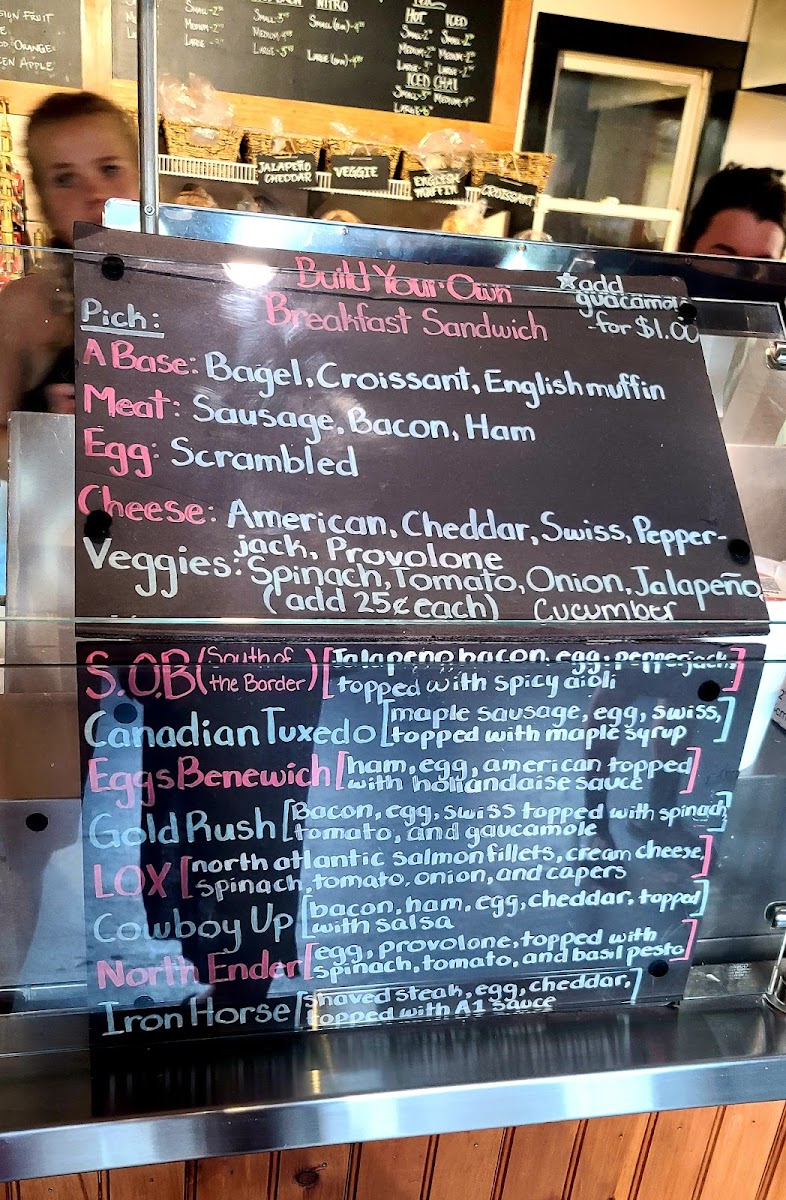 SION FRUIT
ORANGE
EN APPLE
SMALL-2
MEDIUM-2
LARGE-3
SMALL-3
MEDIUM-4
LARGE-5
NITRO
HOT ICED
ICED CHAI
JALAPEÑO
CHEDDAR
VEGGIE
ENGLISH
MUFFIN
CROISSANT
Build Your Own
Breakfast Sandwich
☆add
guacamole
for $1.00
Pick:
A Base: Bagel, Croissant, English muffin
Meat: Sausage, Bacon, Ham
Egg: Scrambled
Cheese: American, Cheddar, Swiss, Pepper-
jack, Provolone
Veggies: Spinach, Tomato, Onion, Jalapeño
(add 25¢ each) Cucumber
S.O.B (South of
the Border) [Jalapeno bacon, egg, pepperjack,
topped with spicy aioli]
Canadian Tuxedo [maple sausage, egg, swiss,
topped with maple syrup]
Eggs Benewich [ham, egg, american topped
with hollandaise sauce]
Gold Rush [Bacon, egg, swiss topped with spinach
tomato, and gaucamole]
LOX [north atlantic salmon fillets, cream cheese,
spinach, tomato, onion, and capers]
Cowboy Up [bacon, ham, egg, cheddar, topped
with salsa]
North Ender [egg, provolone, topped with
spinach, tomato, and basil pesto]
Iron Horse [shaved steak, egg, cheddar,
topped with A1 sauce]